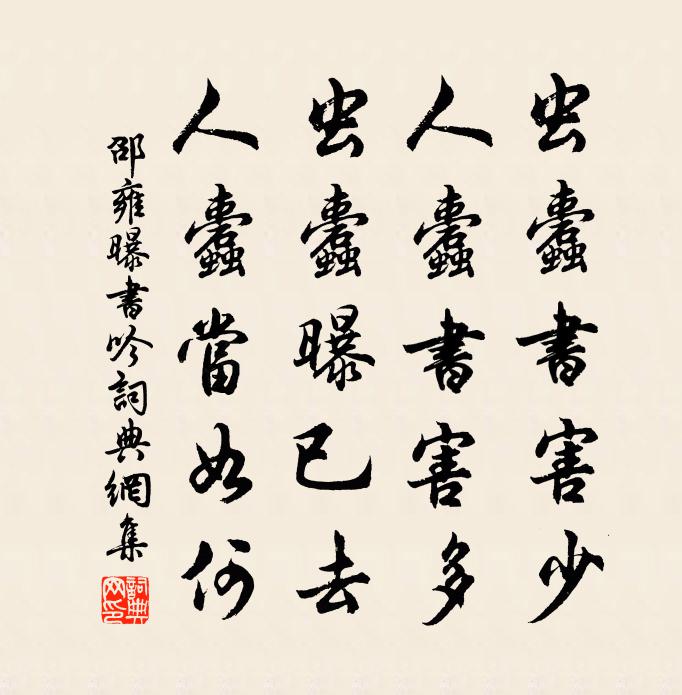 虫蠹書害少
人蠹書害多
虫蠹曝已去
人蠹當如何
邵雍曝書吟詞典網集
詞典網印